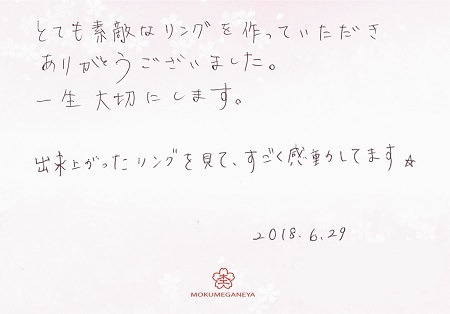 とても素敵なリングを作っていただき
ありがとうございました。
一生大切にします。
出来上がったリングを見て、すごく感動してます☆
2018.6.29
MOKUMEGANEYA